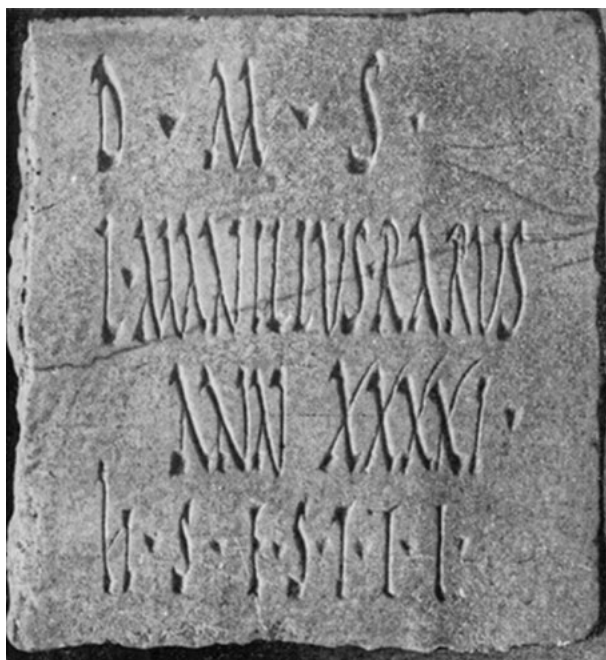 D · M · S ·
L · MANILIVS · RARVS
ANN XXXXI ·
H · S · E · S · T · T · L ·